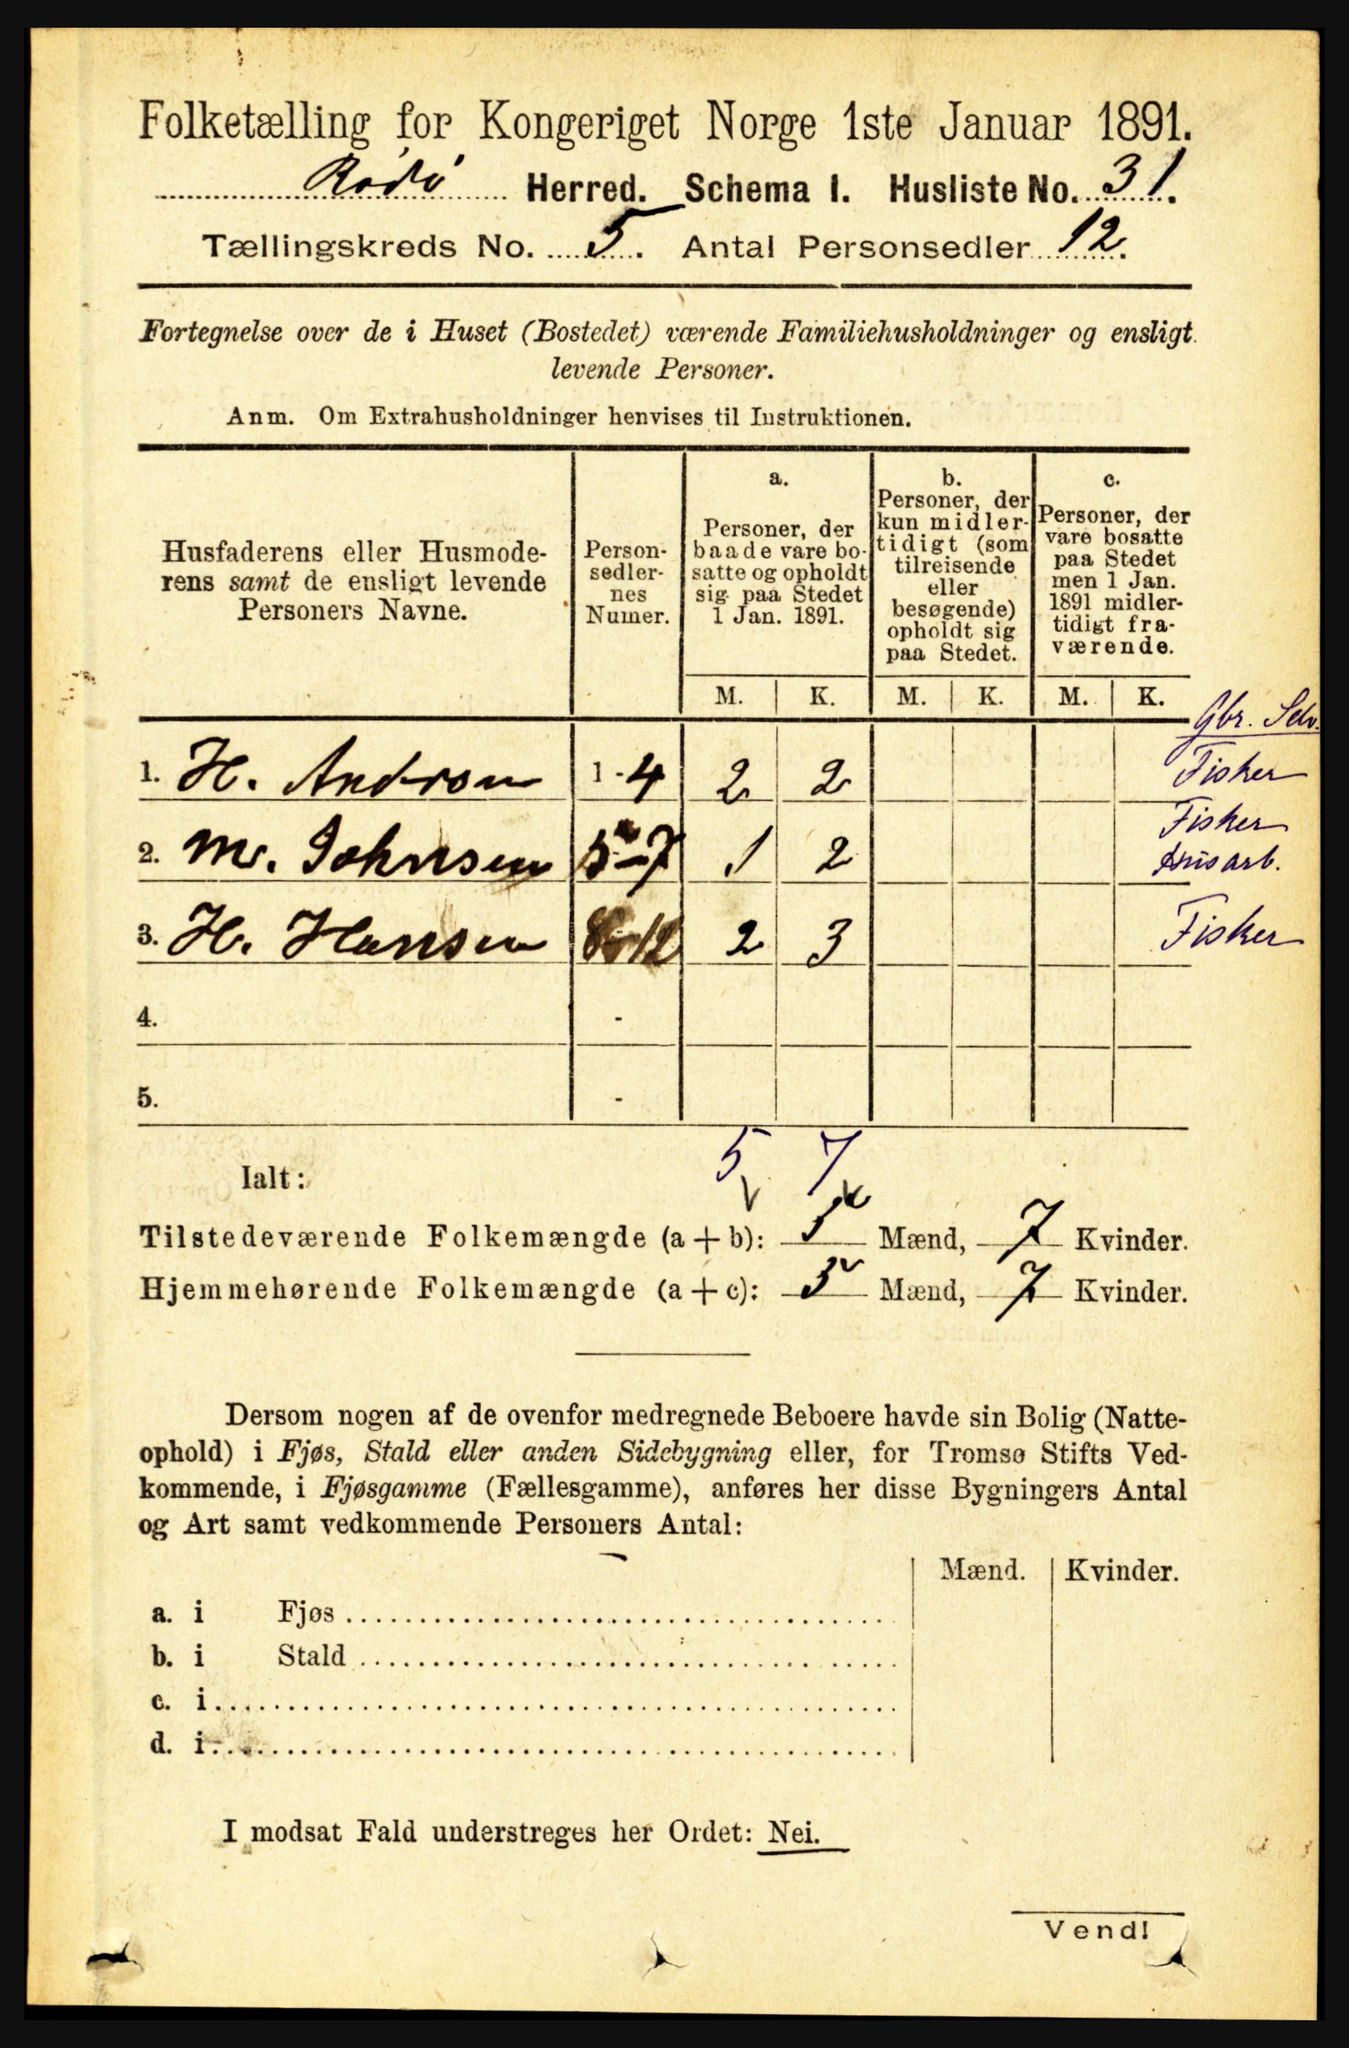 Folketælling for Kongeriget Norge 1ste Januar 1891.
Rödö Herred. Schema I. Husliste No. 31.
Tællingskreds No. 5. Antal Personsedler 12.
Fortegnelse over de i Huset (Bostedet) værende Familiehusholdninger og ensligt
levende Personer.
Anm. Om Extrahusholdninger henvises til Instruktionen.
Husfaderens eller Husmode-
rens samt de ensligt levende
Personers Navne.
Person-
sedler-
nes
Numer.
a.
Personer, der
baade vare bo-
satte og opholdt
sig paa Stedet
1 Jan. 1891.
b.
Personer, der
kun midler-
tidigt (som
tilreisende
eller
besøgende)
opholdt sig
paa Stedet.
c.
Personer, der
vare bosatte
paa Stedet
men 1 Jan.
1891 midler-
tidigt fra-
værende.
M. K. M. K. M. K.
Gbr. Selv.
1. H. Andrsen 1-4 2 2 Fisker
Fisker
2. M. Johnsen 5-7 1 2 Husarb.
3. H. Hansen 8-12 2 3 Fisker
4. -
5. -
Ialt: 5 7
Tilstedeværende Folkemængde (a + b): 5 Mænd, 7 Kvinder.
Hjemmehørende Folkemængde (a + c): 5 Mænd, 7 Kvinder.
Dersom nogen af de ovenfor medregnede Beboere havde sin Bolig (Natte-
ophold) i Fjøs, Stald eller anden Sidebygning eller, for Tromsø Stifts Ved-
kommende, i Fjøsgamme (Fællesgamme), anføres her disse Bygningers Antal
og Art samt vedkommende Personers Antal:
Mænd. Kvinder.
a. i Fjøs
b. i Stald
c. i
d. i
I modsat Fald understreges her Ordet: Nei.
Vend!